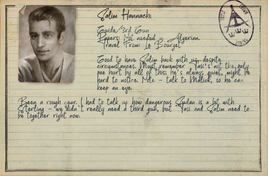 Salim Hannachi
Gouda/3rd Gun
Papers: Not needed in Algeria
Travel from: Le Bourget
Good to have Salim back with us, despite
circumstances. Must remember, Tazi's not the only
one hurt by all of this; he's always quiet, might be
hard to notice. Note - talk to Malick, so he can
keep an eye.
Been a rough year. I had to talk up how dangerous Sudan is a bit with
Sterling - we didn't really need a third gun, but Tazi and Salim need to
be together right now.